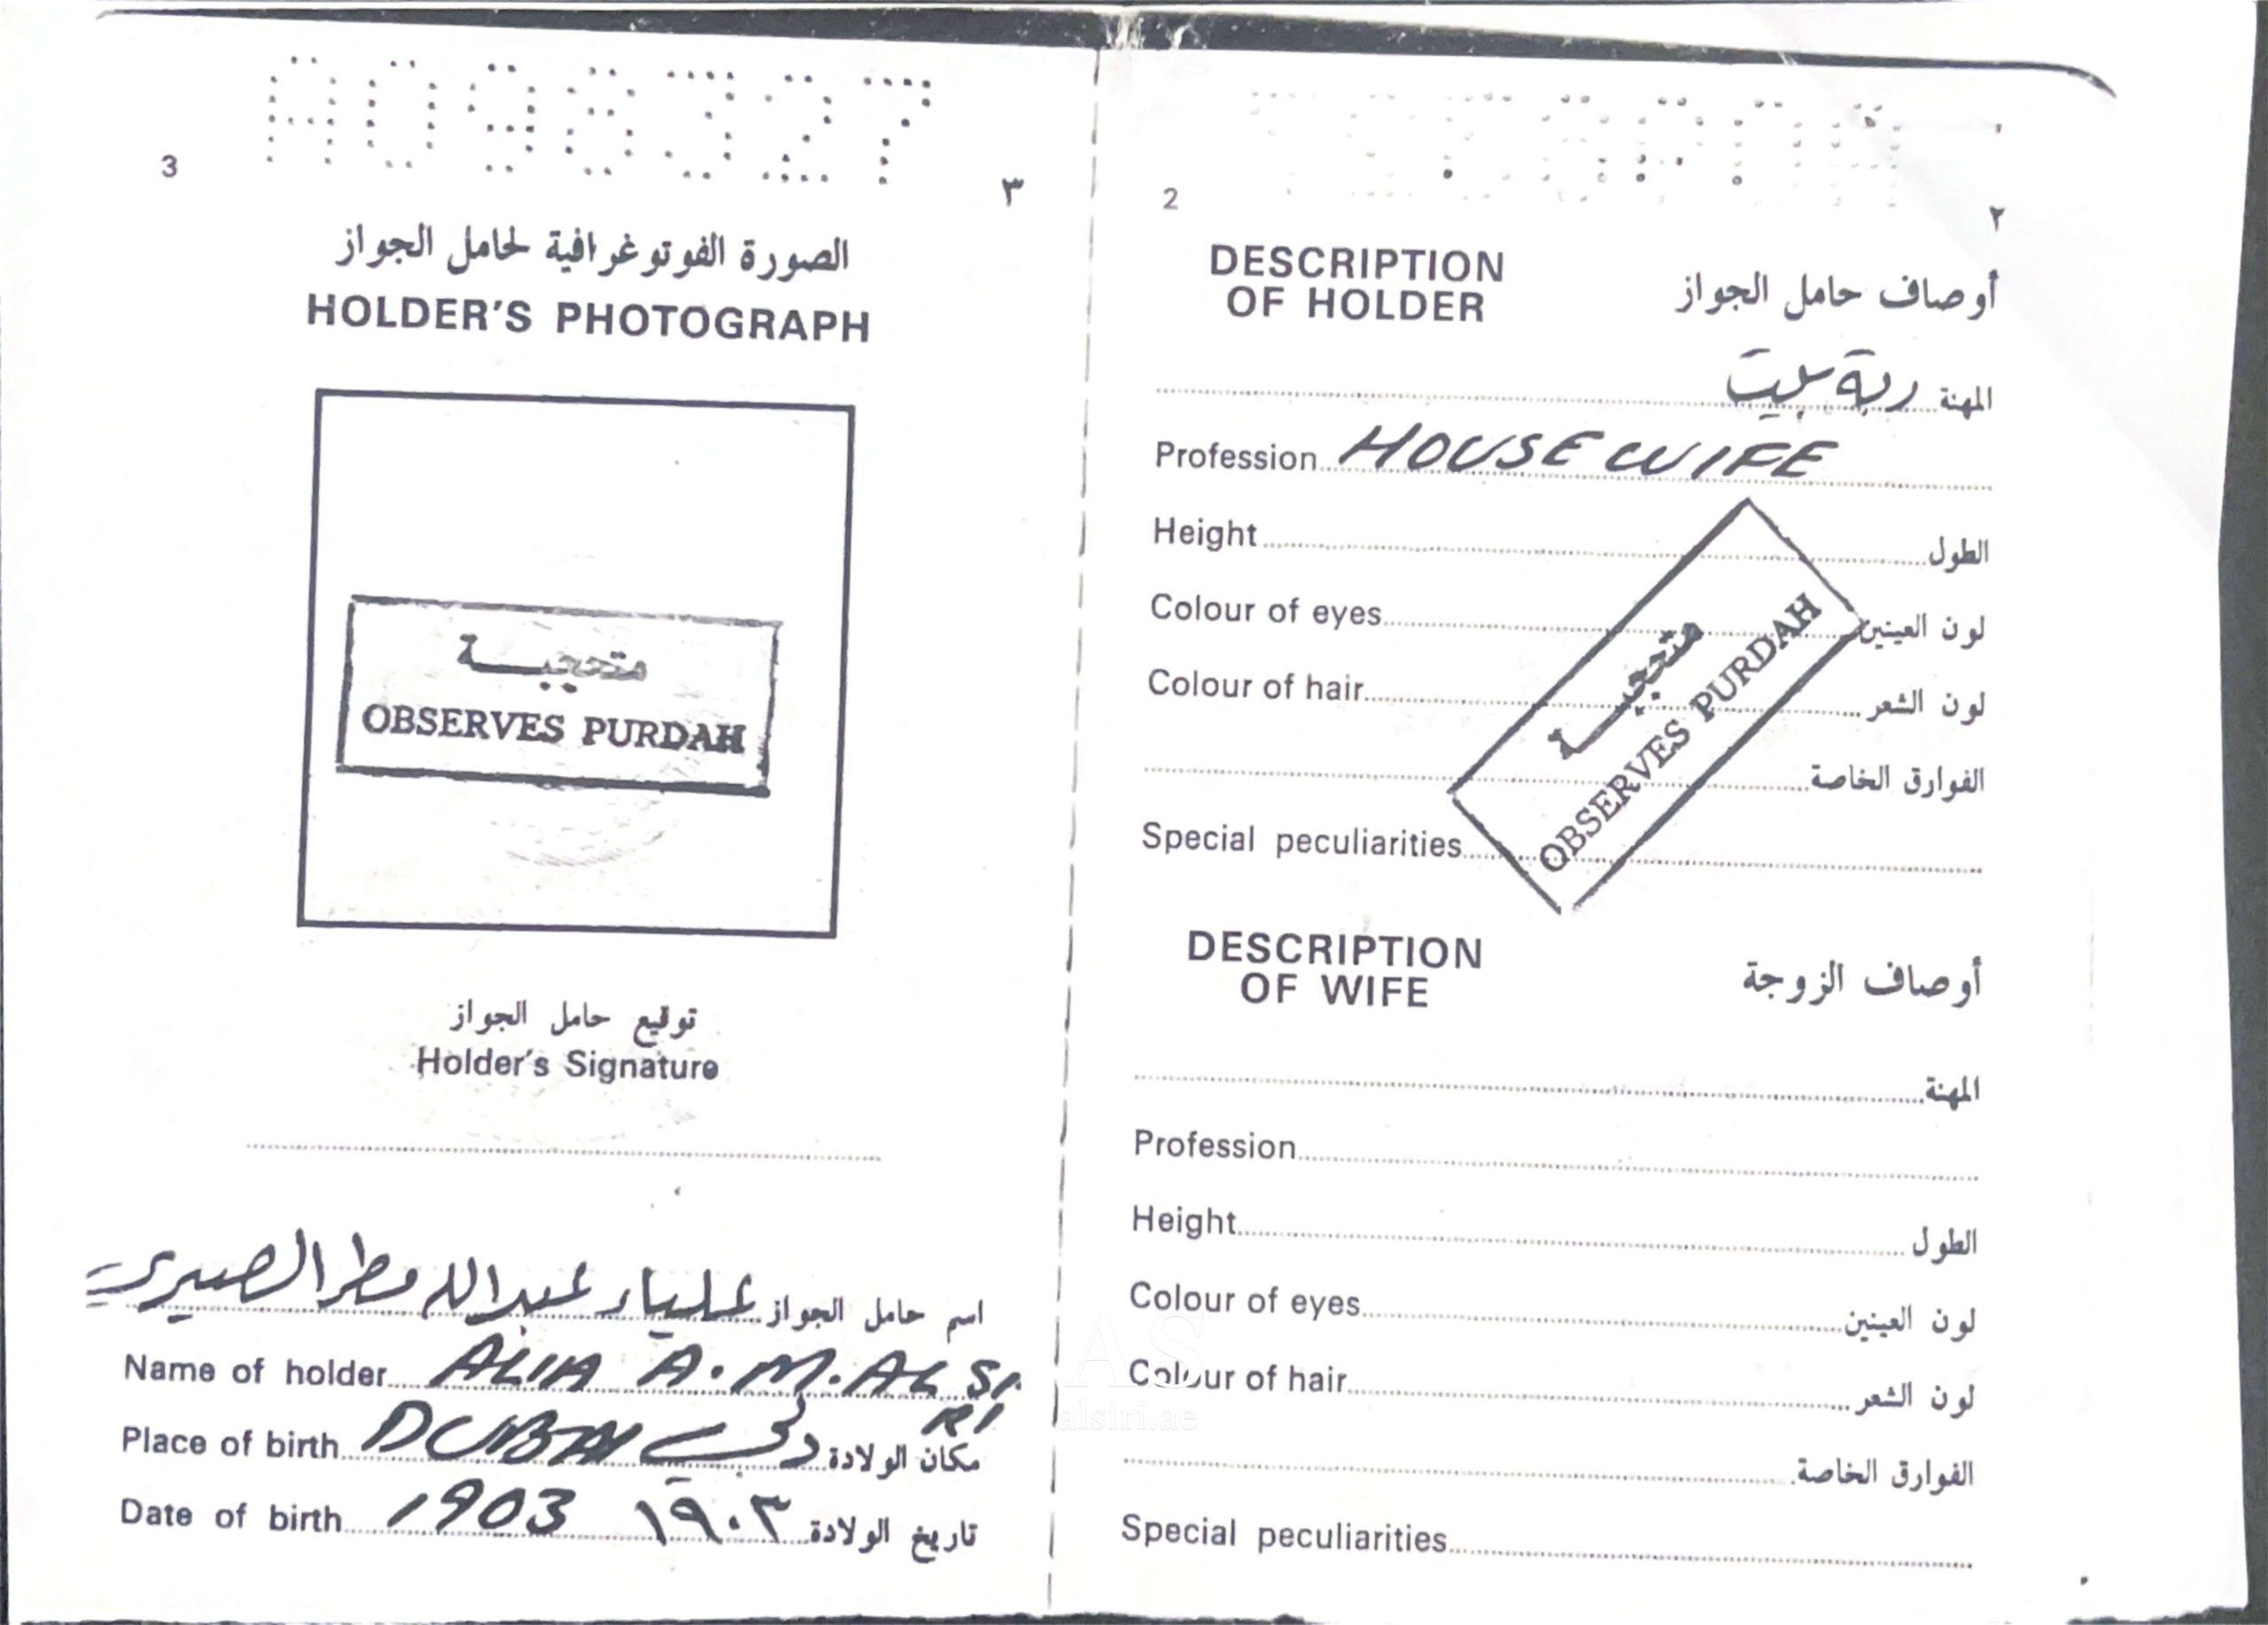 A098327
3 ٣
الصورة الفوتوغرافية لحامل الجواز
HOLDER'S PHOTOGRAPH
متحجبــة
OBSERVES PURDAH
توقيع حامل الجواز
Holder's Signature
اسم حامل الجواز علياء عبدالله مطر الصيري
Name of holder ALIA A.M.AL SI
RI
Place of birth DUBAI دبي مكان الولادة
Date of birth 1903 ١٩٠٣ تاريخ الولادة
2 ٢
DESCRIPTION
OF HOLDER
أوصاف حامل الجواز
المهنة ربة بيت
Profession HOUSE WIFE
Height الطول
Colour of eyes لون العينين
Colour of hair لون الشعر
الفوارق الخاصة
Special peculiarities
متحجبــة
OBSERVES PURDAH
DESCRIPTION
OF WIFE
أوصاف الزوجة
المهنة
Profession
Height الطول
Colour of eyes لون العينين
Colour of hair لون الشعر
الفوارق الخاصة
Special peculiarities
AS
alsiri.ae